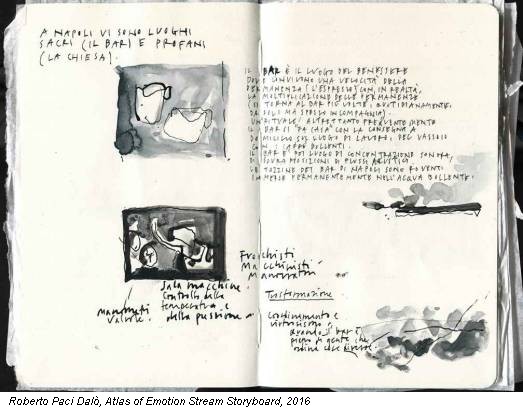 A NAPOLI VI SONO LUOGHI
SACRI (IL BAR) E PROFANI
(LA CHIESA).
IL BAR È IL LUOGO DEL BENESSERE
DOVE CONVIVONO UNA VELOCITÀ DELLA
PERMANENZA (L'ESPRESSO) CON, IN REALTÀ,
LA MOLTIPLICAZIONE DELLE PERMANENZE
(SI TORNA AL BAR PIÙ VOLTE QUOTIDIANAMENTE,
DA SOLI MA SPESSO IN COMPAGNIA).
UN RITUALE ALTRETTANTO FREQUENTE
IL BAR DI "DA CASA" CON LA CONSEGNA A
DOMICILIO SUL LUOGO DI LAVORO, DEL VASSOIO
CON I CAFFÈ BOLLENTI.
IL BAR È POI LUOGO DI CONCENTRAZIONE SONORA,
DI SOVRAPPOSIZIONI DI FLUSSI ACUSTICI.
LE TAZZINE DEI BAR DI NAPOLI SONO ROVENTI
IMMERSE PERMANENTEMENTE NELL'ACQUA BOLLENTE.
Fuochisti
Macchinisti
Manovratori
Sala macchine
Controllo della
temperatura e
della pressione
manometri
valvole.
Trasformazione
quando il bar è
pieno di gente che
ordina cose diverse.
Roberto Paci Dalò, Atlas of Emotion Stream Storyboard, 2016